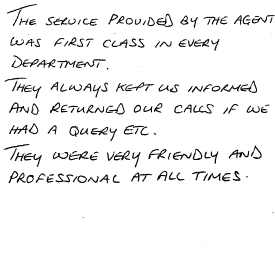 THE SERVICE PROVIDED BY THE AGENT
WAS FIRST CLASS IN EVERY
DEPARTMENT.
THEY ALWAYS KEPT US INFORMED
AND RETURNED OUR CALLS IF WE
HAD A QUERY ETC.
THEY WERE VERY FRIENDLY AND
PROFESSIONAL AT ALL TIMES.